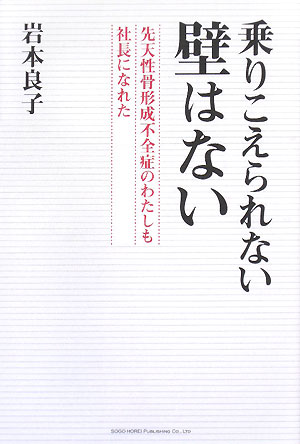 乗りこえられない
壁はない
先天性骨形成不全症のわたしも
社長になれた
岩本良子
SOGO HOREI PUBLISHING CO., LTD